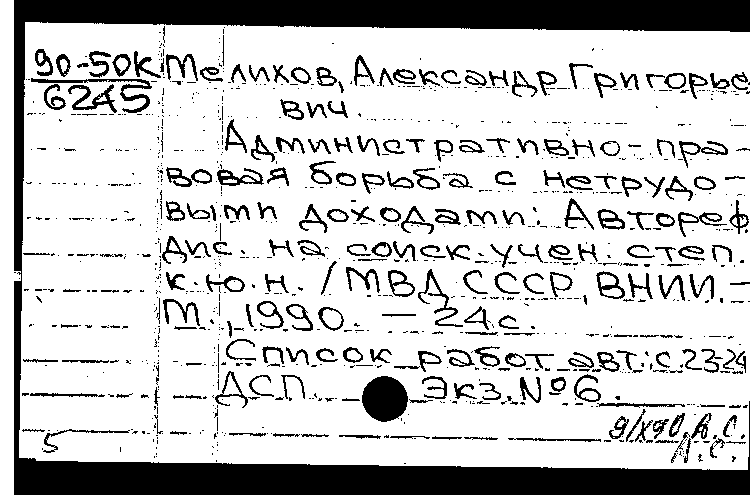 90-50К Мелихов, Александр Григорье
6245 вич.
Административно-пра-
вовая борьба с нетрудо-
выми доходами: Автореф.
дис. на соиск. учен. степ.
к.ю.н. / МВД СССР, ВНИИ.-
М., 1990. - 24 с.
Список работ авт.: с. 23-24
ДСП. Экз. №6.
9/X90. А.С.
5 А.С.